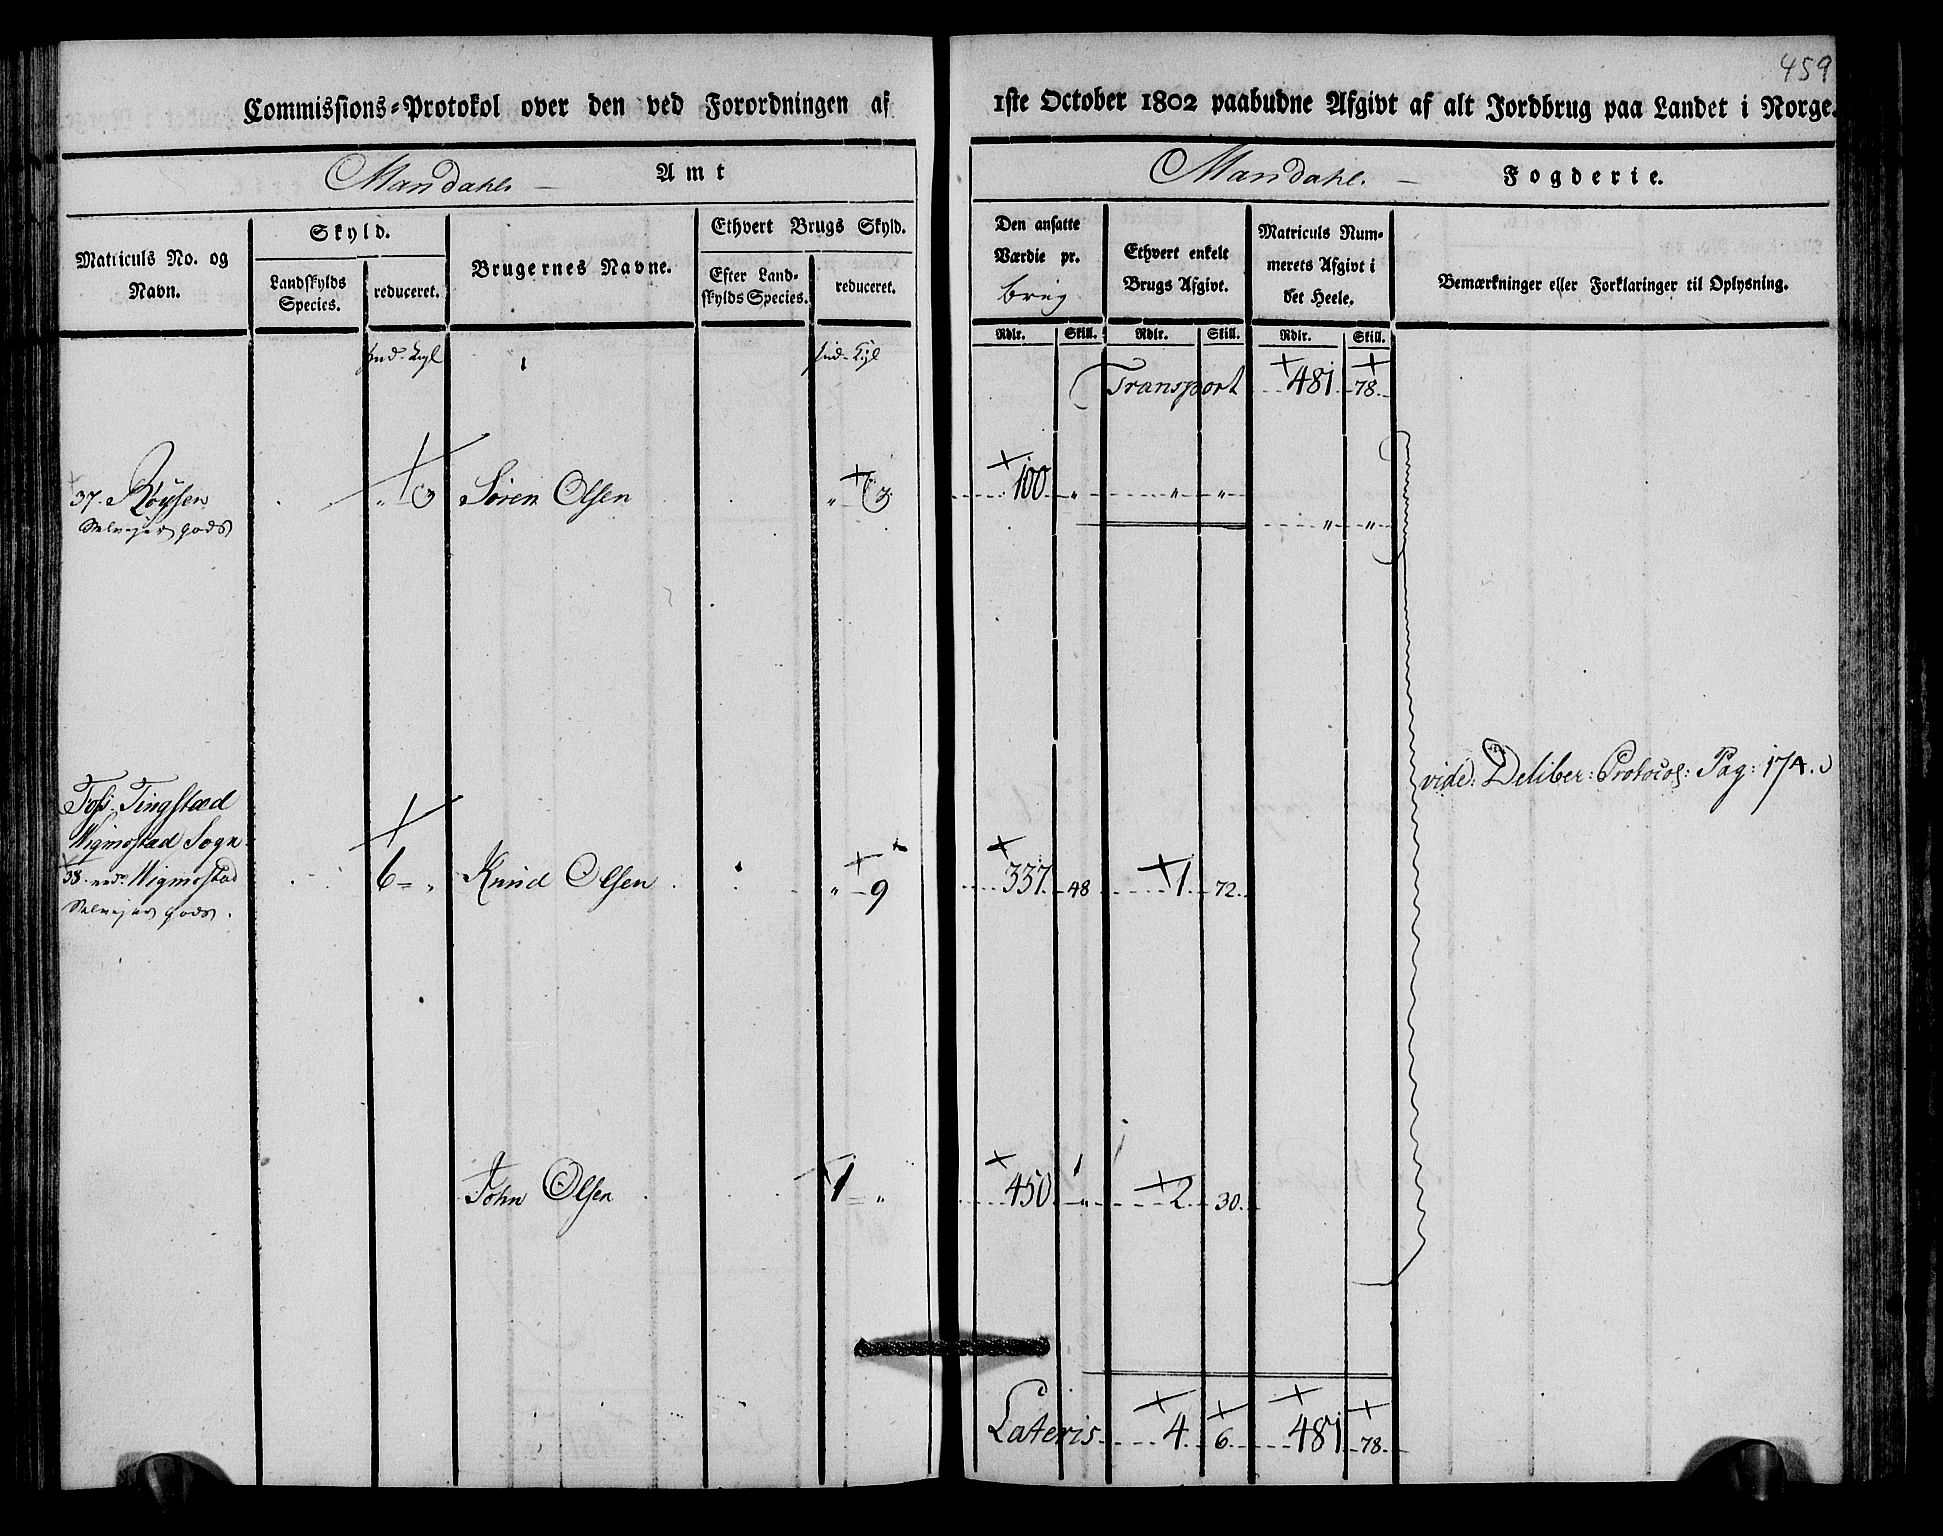 459
Commissions=Protokol over den ved Forordningen af 1ste October 1802 paabudne Afgivt af alt Jordbrug paa Landet i Norge.
Mandahls — Amt
Mandahls — Fogderie.
Matriculs No. og Navn.
Skyld.
Landskylds Species.
reduceret.
Brugernes Navne.
Ethvert Brugs Skyld.
Efter Landskylds Species.
reduceret.
Den ansatte Værdie pr.
Ethvert enkelt Brugs Afgivt.
Matriculs Nummerets Afgivt i det Heele.
Bemærkninger eller Forklaringer til Oplysning.
Rdlr. Skill. Rdlr. Skill. Rdlr. Skill.
Transport 481 78.
37. Røysen " 3 Søren Olsen " 3 100 " " "
Selvejer gods " "
vide: Deliber: Protocol: Pag: 174.
Foss Tingstæd
Wigmostad Sogn
38. Wigmostad 6 = " Knud Olsen " 9 337. 48 1 72.
Selvejer gods.
John Olsen 1 = " 450 " 2 30.
Lateris 4. 6. 481 78.